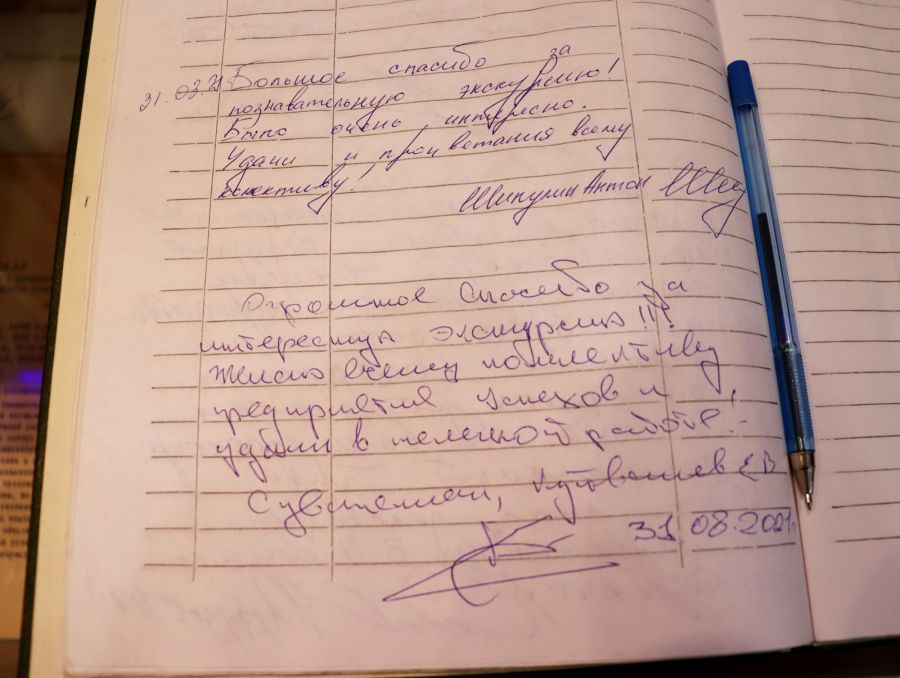 31.03.21 Большое спасибо за
познавательную экскурсию!
Было очень интересно.
Удачи и процветания всему
колективу!
Шипулин Антон
Огромное спасибо за
интересную экскурсию!!!
Желаю всему коллективу
предприятия успехов и
удачи в нелегкой работе!
С уважением, Кутвашев ЕВ
31 08.2021г